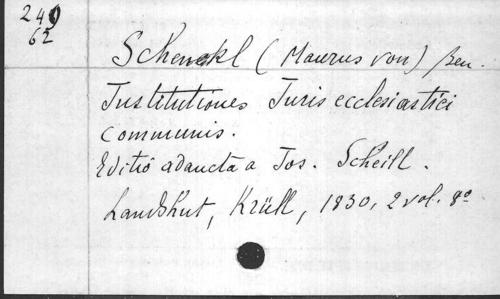 240
62
Schenkl (Maurus von) Ben.
Institutiones Juris ecclesiastici
communis.
Editio adaucta a Jos. Scheill.
Landshut, Krüll, 1830, 2 vol. 8º